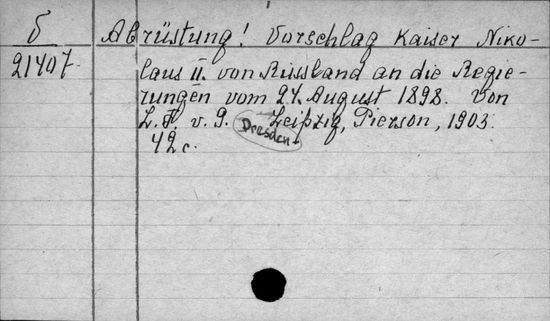 δ Abrüstung! Vorschlag Kaiser Niko-
21407. laus II. von Russland an die Regie-
rungen vom 24. August 1898. Von
L. F. v. P. Dresden Leipzig, Pierson, 1903.
42 c.